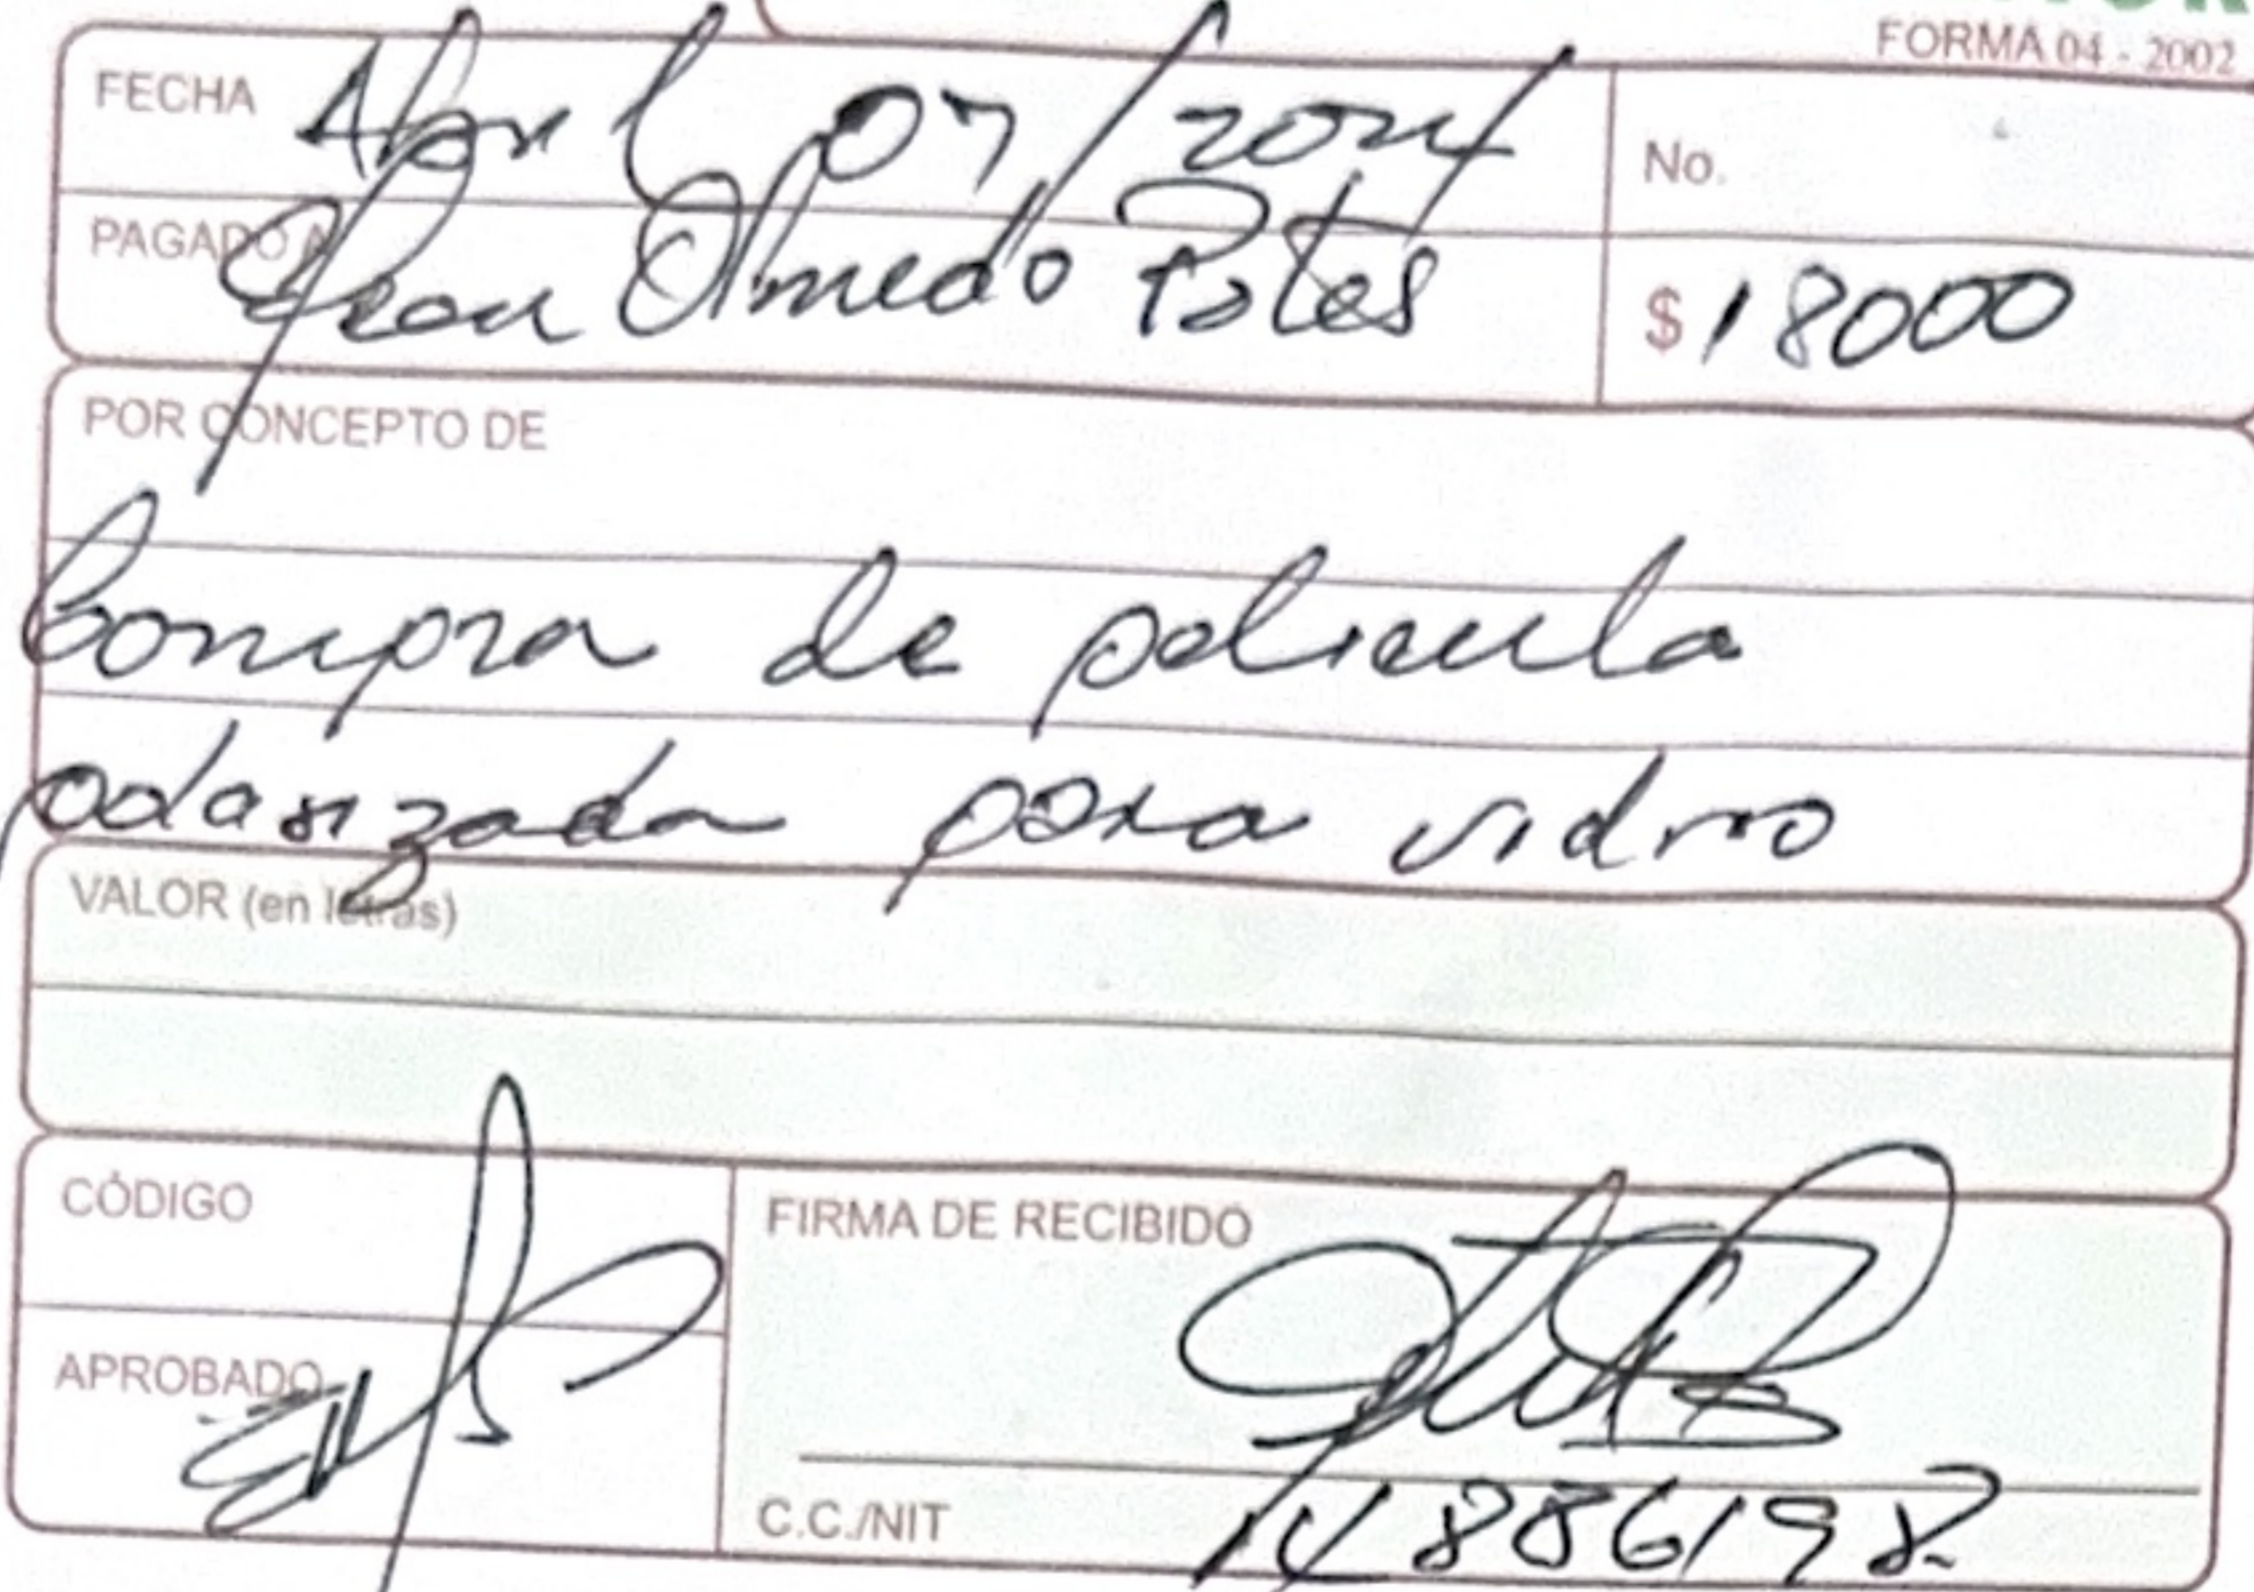 FORMA 04 - 2002
FECHA Abril 07/2024 No.
PAGADO A Jhon Olmedo Potes $ 18000
POR CONCEPTO DE
Compra de pelicula
polarizada para vidrio
VALOR (en letras)
CÓDIGO
FIRMA DE RECIBIDO
APROBADO
C.C./NIT 14886198